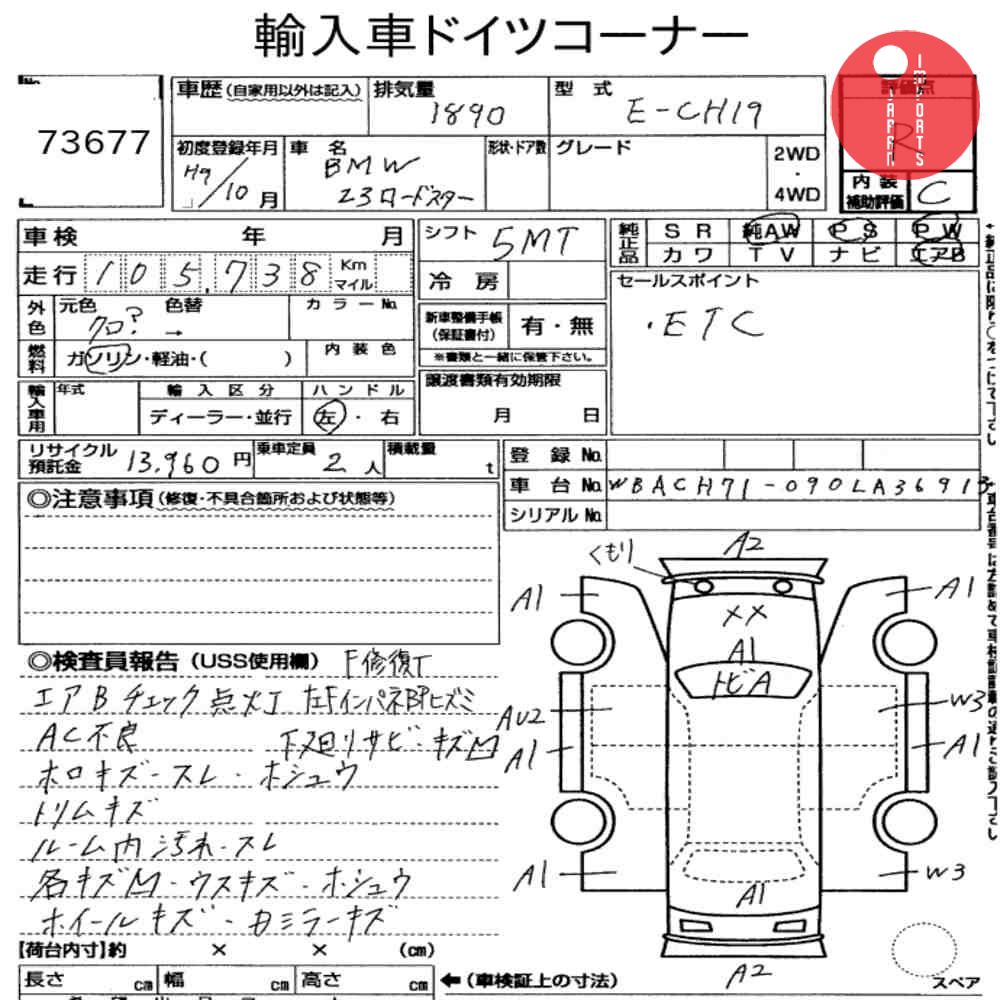 輸入車ドイツコーナー
No.
73677
車歴 (自家用以外は記入)
排気量
1890
型 式
E-CH19
評価点
R
JAPAN
IMPORTS
初度登録年月
H9/10月
車 名
BMW
Z3ロードスター
形状・ドア数
グレード
2WD
・
4WD
内 装
補助評価
C
車検 年 月
シフト
5MT
純正品
SR 純AW PS PW
カワ TV ナビ エアB
走行 105,738 Km マイル
冷 房
セールスポイント
・ETC
外色
元色 色替
クロ? →
カラーNo.
新車整備手帳
(保証書付)
有・無
※書類と一緒に保管下さい。
燃料
ガソリン・軽油・( )
内 装 色
輸入車用
年式
輸 入 区 分
ディーラー・並行
ハ ン ド ル
左・右
譲渡書類有効期限
月 日
リサイクル
預託金
13,960円
乗車定員
2人
積載量
t
登 録 No.
車 台 No. WBACH71-090LA36913
シリアル No.
◎注意事項(修復・不具合箇所および状態等)
◎検査員報告(USS使用欄) F修復T
エアBチェック点火T 左FインパネBPヒズミ
AC不良 下廻リサビ・キズ凹
ホロキズ・スレ・ホシュウ
トリムキズ
ルーム内汚れ・スレ
各キズ凹・ウスキズ・ホシュウ
ホイールキズ・ガミラーキズ
くもり
A2
A1
A1
××
A1
トビA
AU2
W3
A1
A1
A1
W3
A1
A2
スペア
【荷台内寸】約 × × (cm)
長さ cm 幅 cm 高さ cm
←(車検証上の寸法)